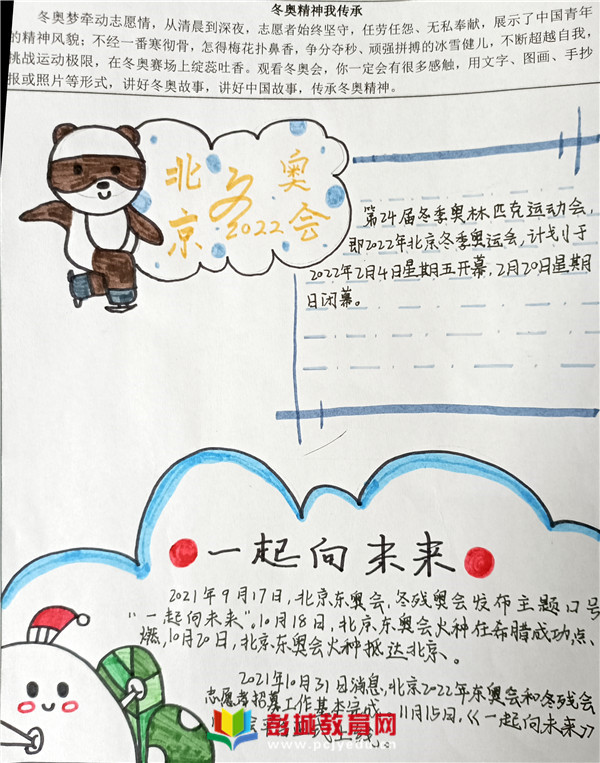 冬奥精神我传承
冬奥梦牵动志愿情，从清晨到深夜，志愿者始终坚守，任劳任怨、无私奉献，展示了中国青年
的精神风貌；不经一番寒彻骨，怎得梅花扑鼻香，争分夺秒、顽强拼搏的冰雪健儿，不断超越自我，
挑战运动极限，在冬奥赛场上绽蕊吐香。观看冬奥会，你一定会有很多感触，用文字、图画、手抄
报或照片等形式，讲好冬奥故事，讲好中国故事，传承冬奥精神。
北京
冬
奥会
2022
第24届冬季奥林匹克运动会，
即2022年北京冬季奥运会，计划于
2022年2月4日星期五开幕，2月20日星期
日闭幕。
一起向未来
2021年9月17日，北京东奥会、冬残奥会发布主题口号
“一起向未来”，10月18日，北京东奥会火种在希腊成功点
燃，10月20日，北京东奥会火种抵达北京、。
2021年10月31日消息，北京2022年东奥会和冬残会
志愿者招募工作基本完成，11月15日，《一起向未来》
式上线。
彭城教育网
www.pcjyedu.cn